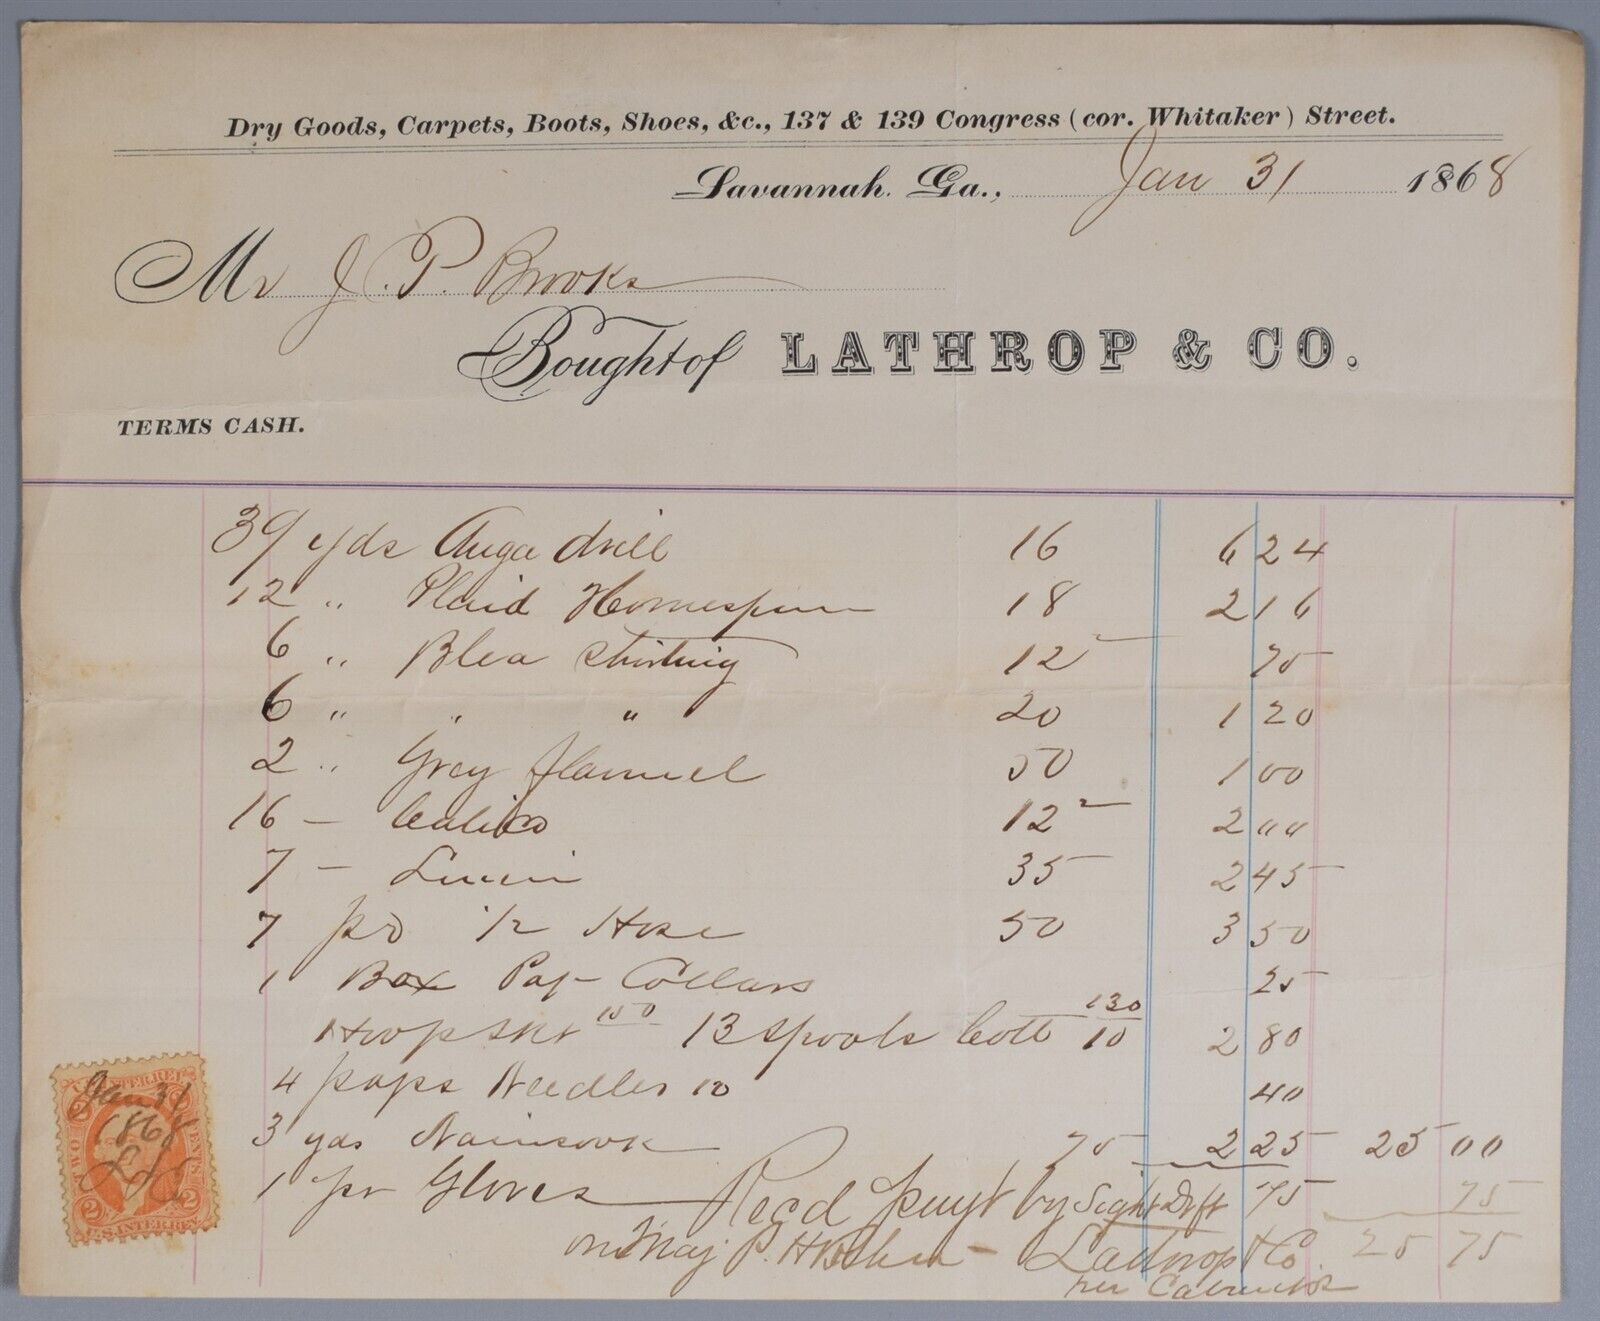 Dry Goods, Carpets, Boots, Shoes, &c., 137 & 139 Congress (cor. Whitaker) Street.
Savannah. Ga., Jan 31 1868
Mr J. P. Brooks
Bought of LATHROP & CO.
TERMS CASH.
39 yds Auga drill 16 6 24
12 " Plaid Homespun 18 2 16
6 " Blea Shirting 12 2 75
6 " " " 20 1 20
2 " Grey flannel 50 1 00
16 - Calico 12 2 2 00
7 - Linen 35 2 45
7 pr 1/2 Hose 50 3 50
1 Box Pap Collars 25
1 Hoop Skt 150 13 Spools Cott 130 10 2 80
4 paps Needles 10 40
3 yds Nainsook 75 2 25 25 00
1 pr Gloves 75 75
Recd paymt by Sight Dft
on Maj P. H. Lathrop & Co 25 75
per
Jan 31
1868
L & Co
U.S. INTER. REV.
TWO CENTS
2 2